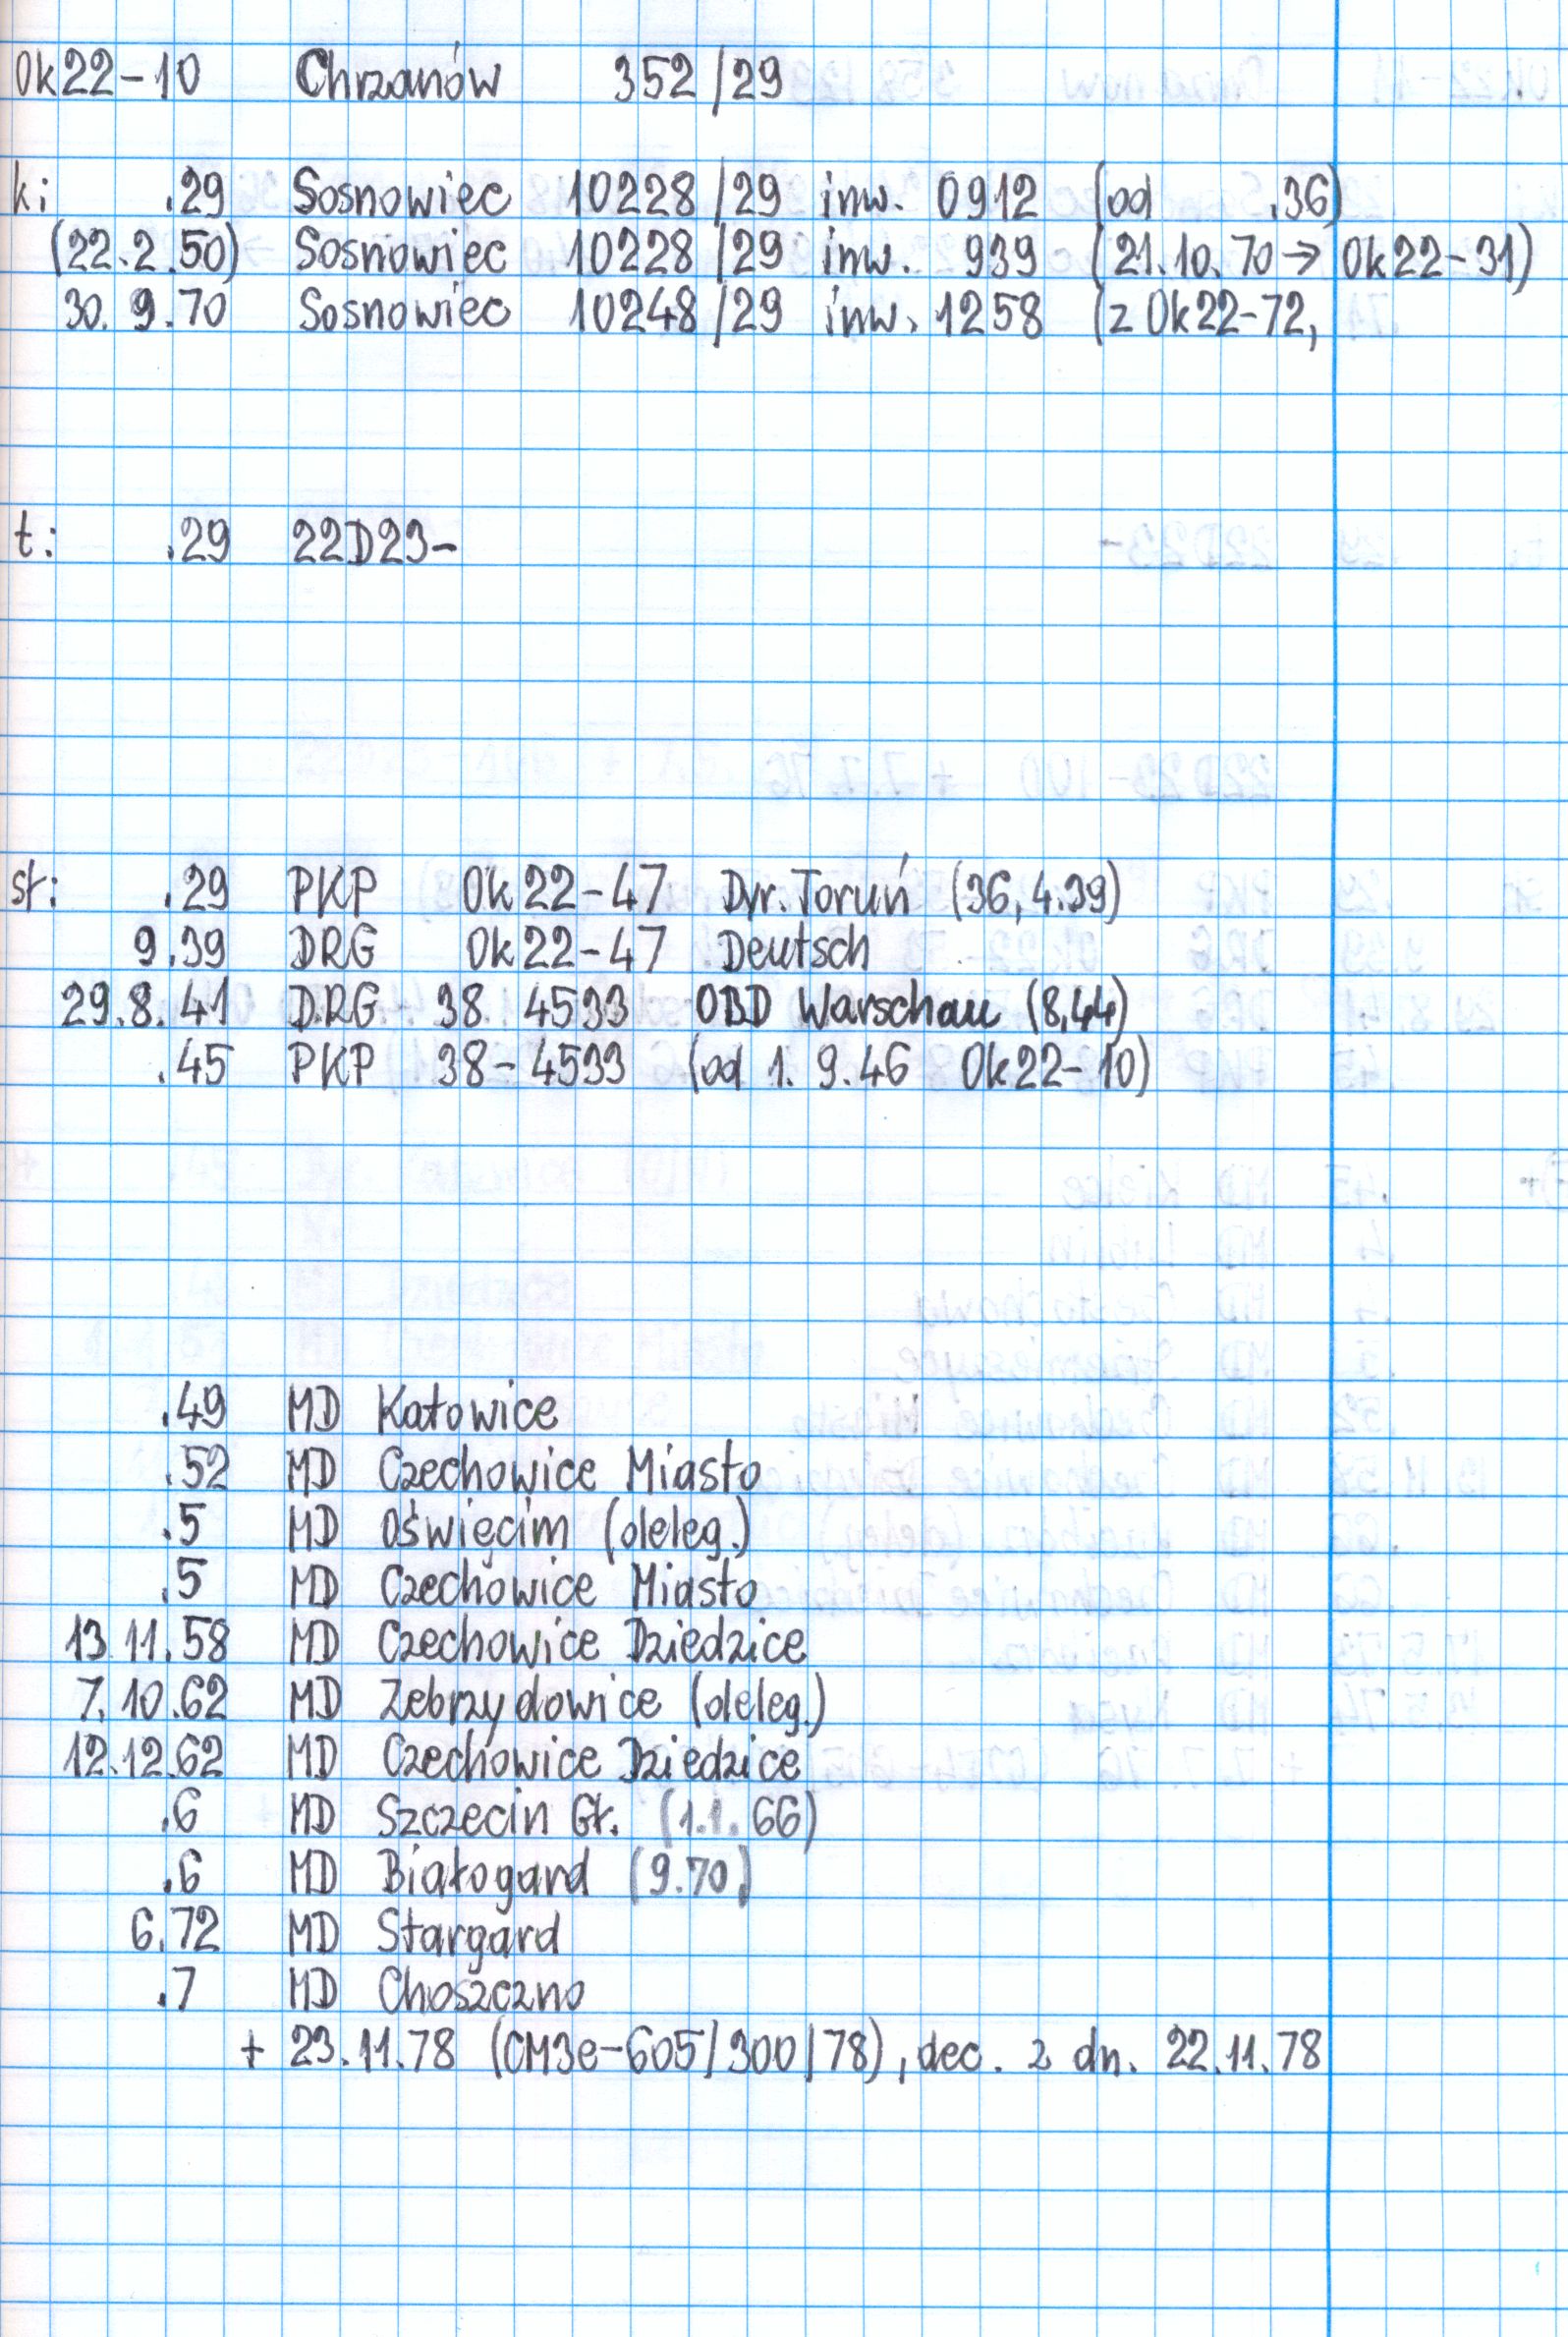 Ok22-10 Chrzanów 352/29
k: .29 Sosnowiec 10228/29 inw. 0912 (od .36)
(22.2.50) Sosnowiec 10228/29 inw. 939 (21.10.70→Ok22-31)
30.9.70 Sosnowiec 10248/29 inw. 1258 (z Ok22-72,
t: .29 22D23-
st: .29 PKP Ok22-47 Dyr. Toruń (36, 4.39)
9.39 DRG Ok22-47 Deutsch
29.8.41 DRG 38 4533 OBD Warschau (8,44)
.45 PKP 38-4533 (od 1.9.46 Ok22-10)
.49 MD Katowice
.52 MD Czechowice Miasto
.5 MD Oświęcim (deleg.)
.5 MD Czechowice Miasto
13.11.58 MD Czechowice Dziedzice
7.10.62 MD Zebrzydowice (deleg.)
12.12.62 MD Czechowice Dziedzice
.6 MD Szczecin Gł. (1.1.66)
.6 MD Białogard (9.70)
6.72 MD Stargard
.7 MD Choszczno
+ 23.11.78 (CM3e-605/300/78), dec. z dn. 22.11.78